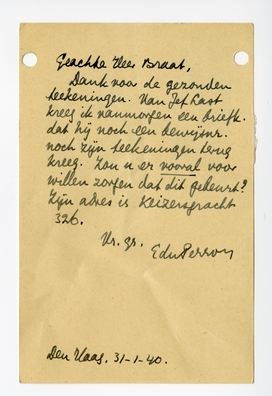 Geachte Heer Braat,
Dank voor de gezonden
teekeningen. Van Jef Last
kreeg ik vanmorgen een briefk.
dat hij noch een bewijsnr.
noch zijn teekeningen terug
kreeg. Zou u er vooral voor
willen zorgen dat dit gebeurt?
Zijn adres is Keizersgracht
326.
Vr. gr.
EduPerron
Den Haag, 31-1-40.